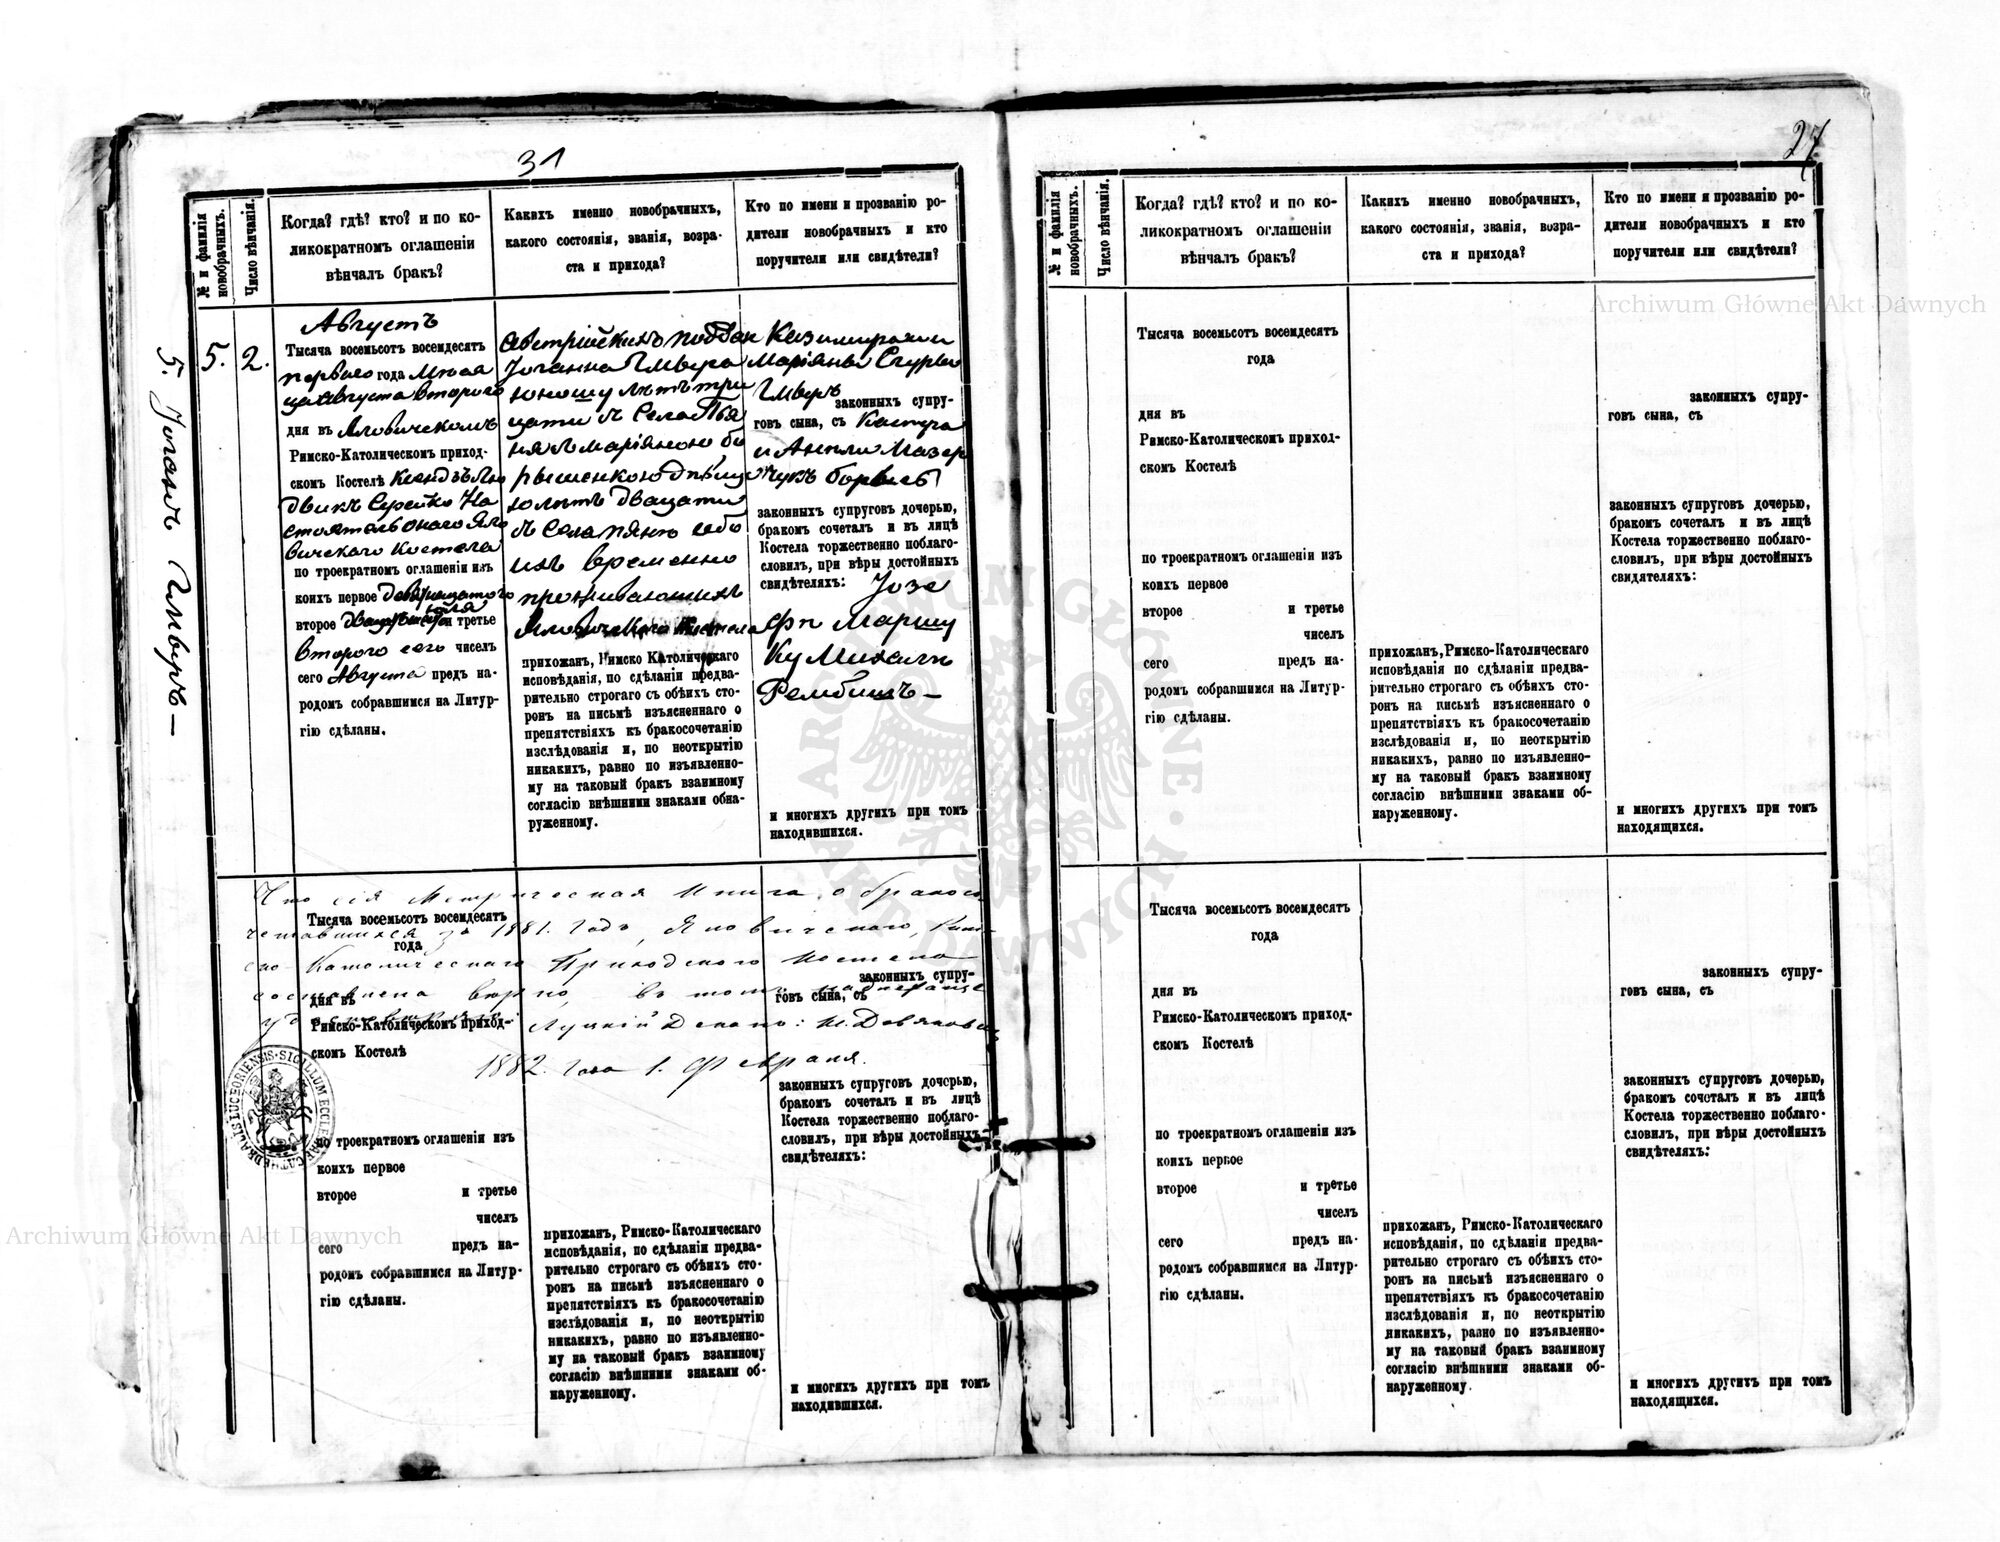 31
№ и фамилія новобрачныхъ.
Число вѣнчанія.
Когда? гдѣ? кто? и по ко-
ликократномъ оглашеніи
вѣнчалъ бракъ?
Какихъ именно новобрачныхъ,
какого состоянія, званія, возра-
ста и прихода?
Кто по имени и прозванію ро-
дители новобрачныхъ и кто
поручители или свидѣтели?
5. Іоганъ Гмыръ —
5.
2.
Августъ
Тысяча восемьсотъ восемдесятъ
перваго года мѣся
ца Августа второго
дня въ Яловичскомъ
Римско-Католическомъ приход-
скомъ Костелѣ Ксендзъ Лю
двикъ Серейко На
стоятель онаго Яло
вичскаго Костела
по троекратномъ оглашеніи изъ
коихъ первое
второе и третье
второго сего чиселъ
сего Августа предъ на-
родомъ собравшимся на Литур-
гію сдѣланы.
Австрійскихъ поддан
Іоганна Гмыра
юношу лѣтъ три
цати съ Села
съ Маріянною Бо
рышенкою дѣвице
ю лѣтъ двацати
съ Села
ихъ временно
проживающихъ
Яловичскаго Костела
прихожанъ, Римско Католическаго
исповѣданія, по сдѣланіи предва-
рительно строгаго съ обѣихъ сто-
ронъ на письмѣ изъясненнаго о
препятствіяхъ къ бракосочетанію
изслѣдованія и, по неоткрытію
никакихъ, равно по изъявленно-
му на таковый бракъ взаимному
согласію внѣшними знаками обна-
руженному.
Казимира и
Маріяны
Гмыръ
законныхъ супру-
говъ сына, съ
и Анели Мазер
чукъ
законныхъ супруговъ дочерью,
бракомъ сочеталъ и въ лицѣ
Костела торжественно поблаго-
словилъ, при вѣры достойныхъ
свидѣтеляхъ: Іозе
фѣ Марцу
ку Михалѣ
Рембишъ —
и многихъ другихъ при томъ
находившихся.
Что сія Метрическая Книга о бракосо
четавшихся за 1881. годъ, Яловичскаго, Рим-
ско-Католическаго Приходскаго Костела
составлена вѣрно, въ томъ
Луцкій Декано:
1882. Года 1. Февраля.
Тысяча восемьсотъ восемдесятъ
года
дня въ
Римско-Католическомъ приход-
скомъ Костелѣ
по троекратномъ оглашеніи изъ
коихъ первое
второе и третье
чиселъ
сего предъ на-
родомъ собравшимся на Литур-
гію сдѣланы.
прихожанъ, Римско-Католическаго
исповѣданія, по сдѣланіи предва-
рительно строгаго съ обѣихъ сто-
ронъ на письмѣ изъясненнаго о
препятствіяхъ къ бракосочетанію
изслѣдованія и, по неоткрытію
никакихъ, равно по изъявленно-
му на таковый бракъ взаимному
согласію внѣшними знаками об-
наруженному.
законныхъ супру-
говъ сына, съ
законныхъ супруговъ дочерью,
бракомъ сочеталъ и въ лицѣ
Костела торжественно поблаго-
словилъ, при вѣры достойныхъ
свидѣтеляхъ:
и многихъ другихъ при томъ
находившихся.
SIGILLUM ECCLESIAE CATHEDRALIS LUCEORIENSIS
27
№ и фамилія новобрачныхъ.
Число вѣнчанія.
Когда? гдѣ? кто? и по ко-
ликократномъ оглашеніи
вѣнчалъ бракъ?
Какихъ именно новобрачныхъ,
какого состоянія, званія, возра-
ста и прихода?
Кто по имени и прозванію ро-
дители новобрачныхъ и кто
поручители или свидѣтели?
Тысяча восемьсотъ восемдесятъ
года
дня въ
Римско-Католическомъ приход-
скомъ Костелѣ
по троекратномъ оглашеніи изъ
коихъ первое
второе и третье
чиселъ
сего предъ на-
родомъ собравшимся на Литур-
гію сдѣланы.
прихожанъ, Римско-Католическаго
исповѣданія по сдѣланіи предва-
рительно строгаго съ обѣихъ сто-
ронъ на письмѣ изъясненнаго о
препятствіяхъ къ бракосочетанію
изслѣдованія и, по неоткрытію
никакихъ, равно по изъявленно-
му на таковый бракъ взаимному
согласію внѣшними знаками об-
наруженному.
законныхъ супру-
говъ сына, съ
законныхъ супруговъ дочерью,
бракомъ сочеталъ и въ лицѣ
Костела торжественно поблаго-
словилъ, при вѣры достойныхъ
свидятеляхъ:
и многихъ другихъ при томъ
находящихся.
Тысяча восемьсотъ восемдесятъ
года
дня въ
Римско-Католическомъ приход-
скомъ Костелѣ
по троекратномъ оглашеніи изъ
коихъ первое
второе и третье
чиселъ
сего предъ на-
родомъ собравшимся на Литур-
гію сдѣланы.
прихожанъ, Римско-Католическаго
исповѣданія, по сдѣланіи предва-
рительно строгаго съ обѣихъ сто-
ронъ на письмѣ изъясненнаго о
препятствіяхъ къ бракосочетанію
изслѣдованія и, по неоткрытію
никакихъ, равно по изъявленно-
му на таковый бракъ взаимному
согласію внѣшними знаками об-
наруженному.
законныхъ супру-
говъ сына, съ
законныхъ супруговъ дочерью,
бракомъ сочеталъ и въ лицѣ
Костела торжественно поблаго-
словилъ, при вѣры достойныхъ
свидѣтеляхъ:
и многихъ другихъ при томъ
находящихся.
Archiwum Główne Akt Dawnych
Archiwum Główne Akt Dawnych
ARCHIWUM GŁÓWNE · AKT DAWNYCH ·